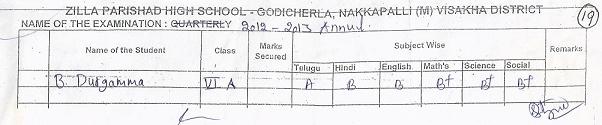 ZILLA PARISHAD HIGH SCHOOL - GODICHERLA, NAKKAPALLI (M) VISAKHA DISTRICT
19
NAME OF THE EXAMINATION : QUARTERLY 2012 - 2013 Annual.
Name of the Student Class Marks Secured Subject Wise Remarks
Telugu Hindi English Math's Science Social
B. Durgamma VI A A B B B+ B+ B+